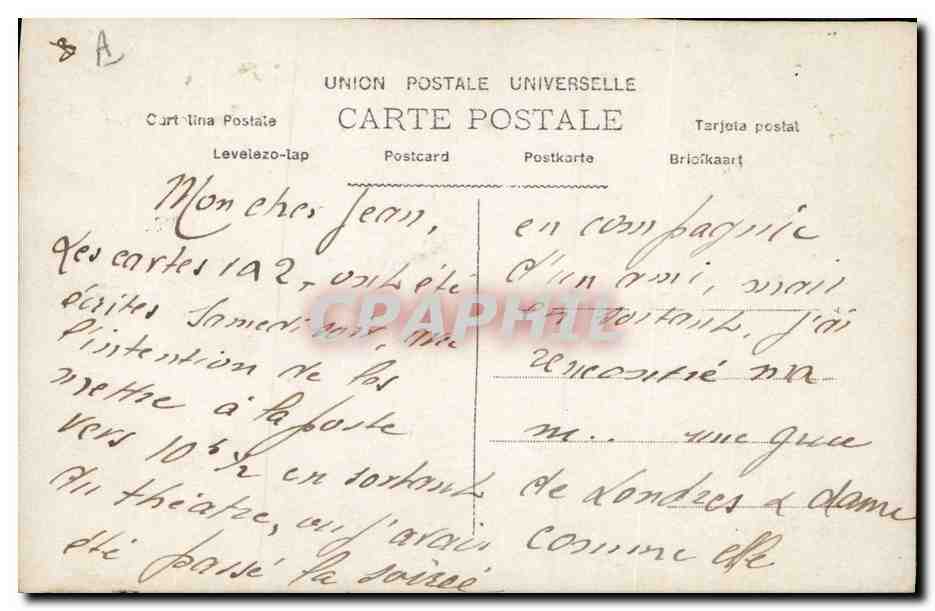 8 A
UNION POSTALE UNIVERSELLE
CARTE POSTALE
Cartolina Postale
Tarjeta postal
Levelezo-lap
Postcard
Postkarte
Briefkaart
Mon cher Jean,
Les cartes 1 a 2, ont été
écrites Samedi soir,
l'intention de les
mettre à la poste
vers 10 h 1/2 en sortant
du théâtre, ou j'avais
été passé la soirée
en compagnie
d'un ami, mais
en sortant, j'ai
rencontré ma
m.. une
de Londres & dame
comme elle
CPARHIL